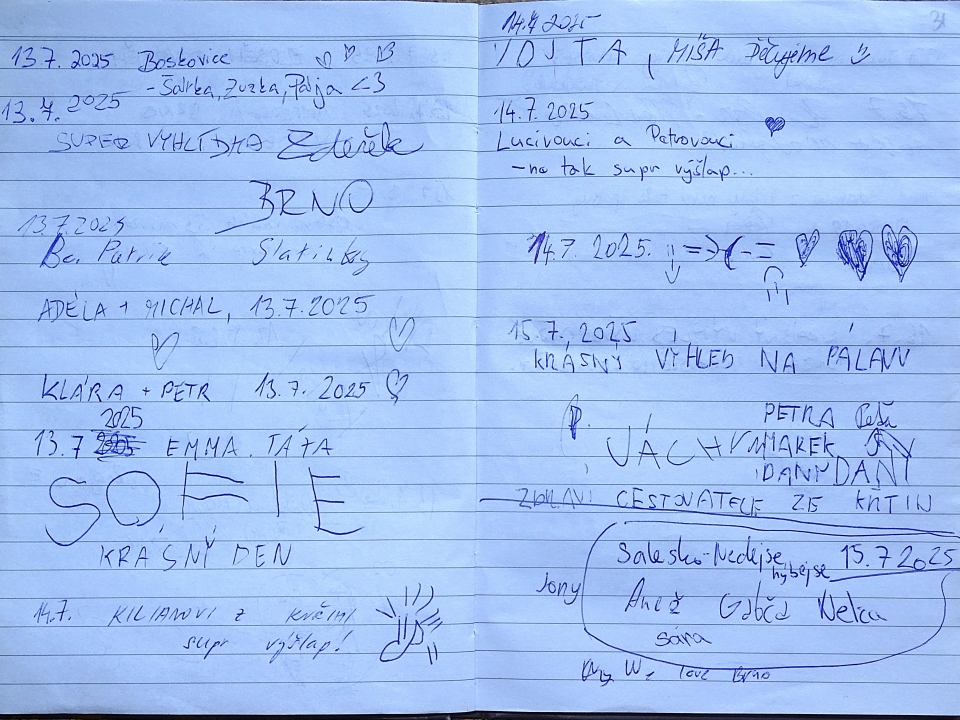 13.7. 2025 Boskovice
- Šárka, Zuzka, Pája <3
13.7. 2025
SUPER VYHLÍDKA Zdeněk
BRNO
13.7.2025
Patrik Slatinky
ADÉLA + MICHAL, 13.7.2025
KLÁRA + PETR 13.7.2025
2025
13.7 EMMA. TÁTA
SOFIE
KRÁSNÝ DEN
14.7. KILIANOVI z
supr výšlap!
31
14.7 2025
VOJTA, MÍŠA Děkujeme
14.7.2025
Lucivouci a Petrovouci
- no tak supr výšlap...
14.7. 2025.
15.7.2025
KRÁSNÝ VÝHLED NA PÁLAVU
PETRA
VÁCHYM MAREK
DANY DANY
ZDRAVÍ CESTOVATELÉ ZE KŘTIN
Salesko-Nedejse 15.7 2025
hýbejse
Jony
Anež Gábča Nelča
Sára
We love Brno